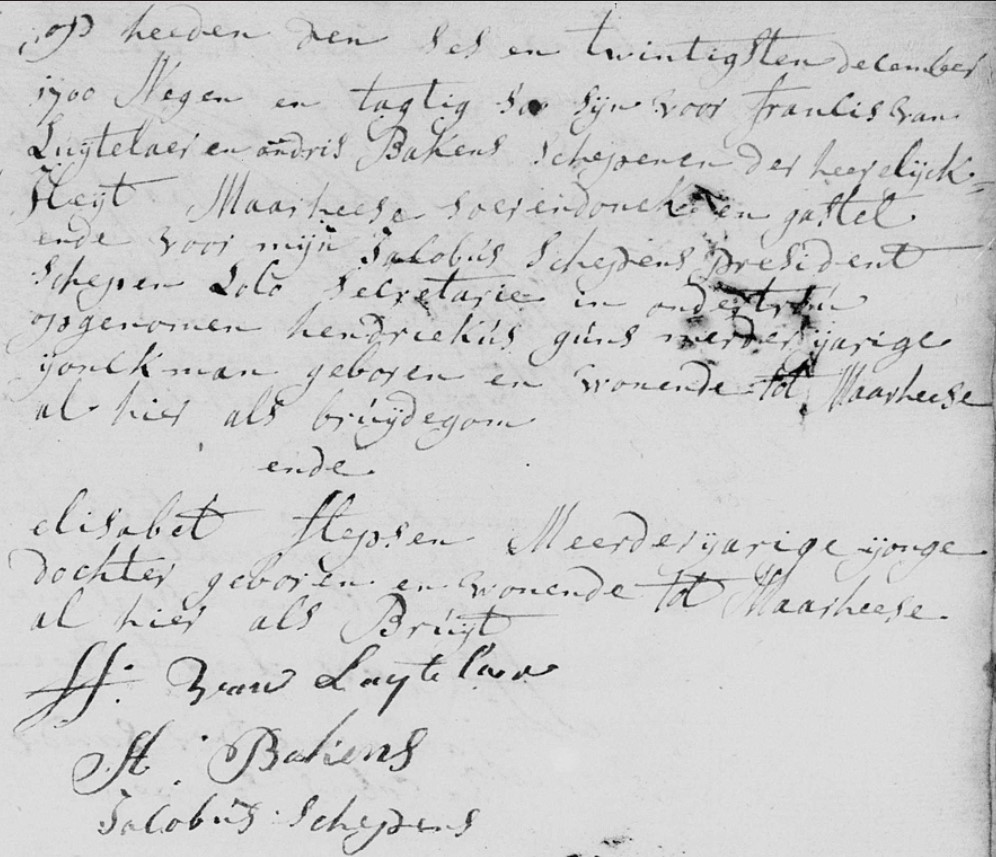 op heeden den ses en twintigsten december
1700 Negen en tagtig so sijn voor francis van
Luijtelaer en andris Bakens schepenen der heerelijck-
heijt Maarheese soerendonck en gastel
ende voor mijn Jacobus Schepens president
schepen Loco secretarie in ondertrou
opgenomen hendriekus guns meerderijarige
yonckman geboren en wonende tot Maarheese
al hier als bruijdegom
ende
elisabet Hepsen Meerderyarige yonge
dochter geboren en wonende tot Maarheese
al hier als Bruijt
ff. van Luytelaer
A. Bakens
Jacobus Schepens